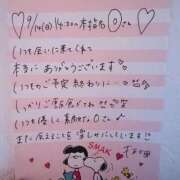 9/14(日) 14:30の本指名 Oさん
いつも会いに来てくれて
本当にありがとうございます
いつものご予定終わりに
しっかりご飯食べてね
いつも優しく素敵なOさん
また会えることを楽しみにしています!!
SMAK